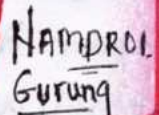 NAMDROL
Gurung